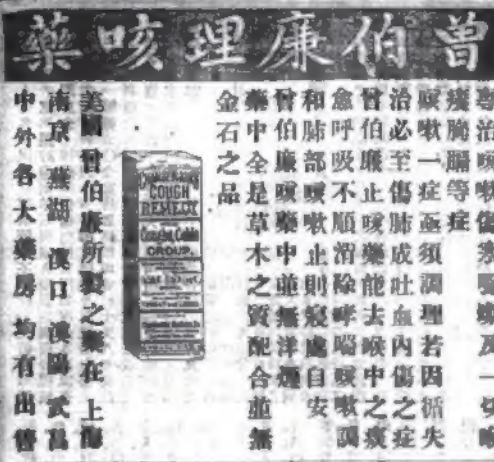 曾伯廉理咳藥
專治咳嗽傷寒及一切
痰胸膈等症
咳嗽一症亟須調理若因循失
治必至傷肺成吐血內傷之症
曾伯廉止咳藥能去喉中之痰
愈呼吸不順消除哮喘咳嗽調
和肺部咳嗽止則寢處自安
曾伯廉咳藥中並無洋烟
藥中全是草木之質配合並無
金石之品
COUGH
REMEDY
CROUP.
美國曾伯廉所製之藥在上海
南京 蕪湖 漢口 漢陽 武昌
中外各大藥房均有出售